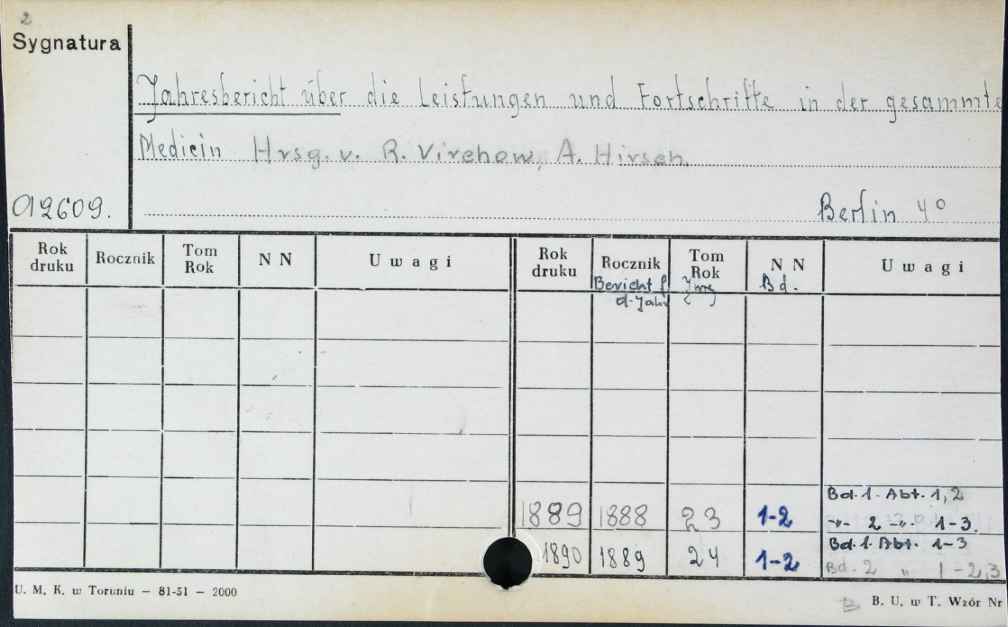 2
Sygnatura
Jahresbericht über die Leistungen und Fortschritte in der gesammte
Medicin Hrsg. v. R. Virchow, A. Hirsch.
Berlin 4°
09609.
Rok druku Rocznik Tom Rok N N Uwagi Rok druku Rocznik Tom Rok N N Uwagi
Bericht f. Jhrg Bd.
d. Jahr
Bd. 1. Abt. 1, 2
1889 1888 23 1-2 -"- 2 -"- 1-3.
Bd. 1. Abt. 1-3
1890 1889 24 1-2 Bd. 2 " 1-2,3
U. M. K. w Toruniu — 81-51 — 2000
B. U. w T. Wzór Nr